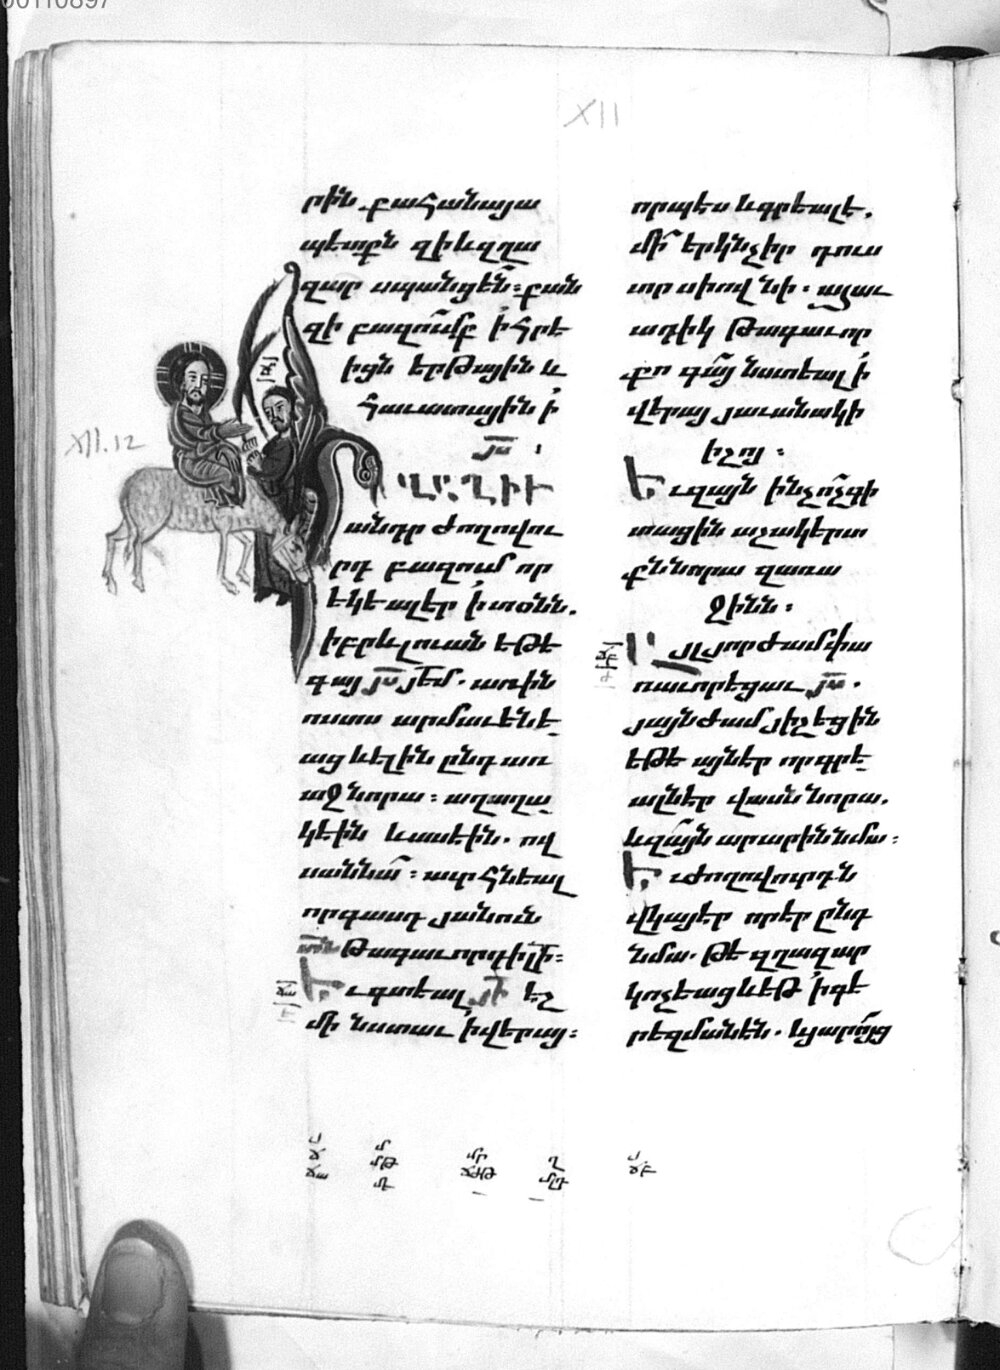 XII
րին քահանայա
պետքն զի եւ զղա
զար սպանցեն։ քան
զի բազումք ի հրէ
ից ն երթային և
հաւատային ի
յս ։
ՎԱՂԻՒ
անդր ժողովու
րդ բազում որ
եկեալ էր ի տօնն.
իբրև լուան եթե
գայ յս յեմ. առին
ոստս արմաւենե֊
աց և ելին ընդ առ
աջ նորա։ աղաղա֊
կէին և ասէին. ով
սաննա ։ աւրհնեալ
որ գաս դ յանուն
տն թագաւոր դ իլի։
Եւ գտեալ յի էշ
մի նստաւ ի վերայ։
որպես և գրեալ է.
մի երկնչիր դուս
տր սիովնի. ահաւ
ադիկ թագաւոր
քո գայ նստեալ ի
վերայ յաւանակի
իշոյ ։
Եւ զայն ինչ ոչ գի
տացին աշակերտ
քն նորա զառա
ջինն ։
Այլ յորժամ փա
ռաւորեցաւ յս.
յայնժամ յիշեցին
եթե այն էր որ գրե֊
ալ էր վասն նորա.
և զայն արարին նմա։
Եւ ժողովուրդն
վկայէր որ էր ընդ
նմա. թե զղազար
կոչեաց և եթ ի գե
րեզմանէն. և յարոյց
XII.12